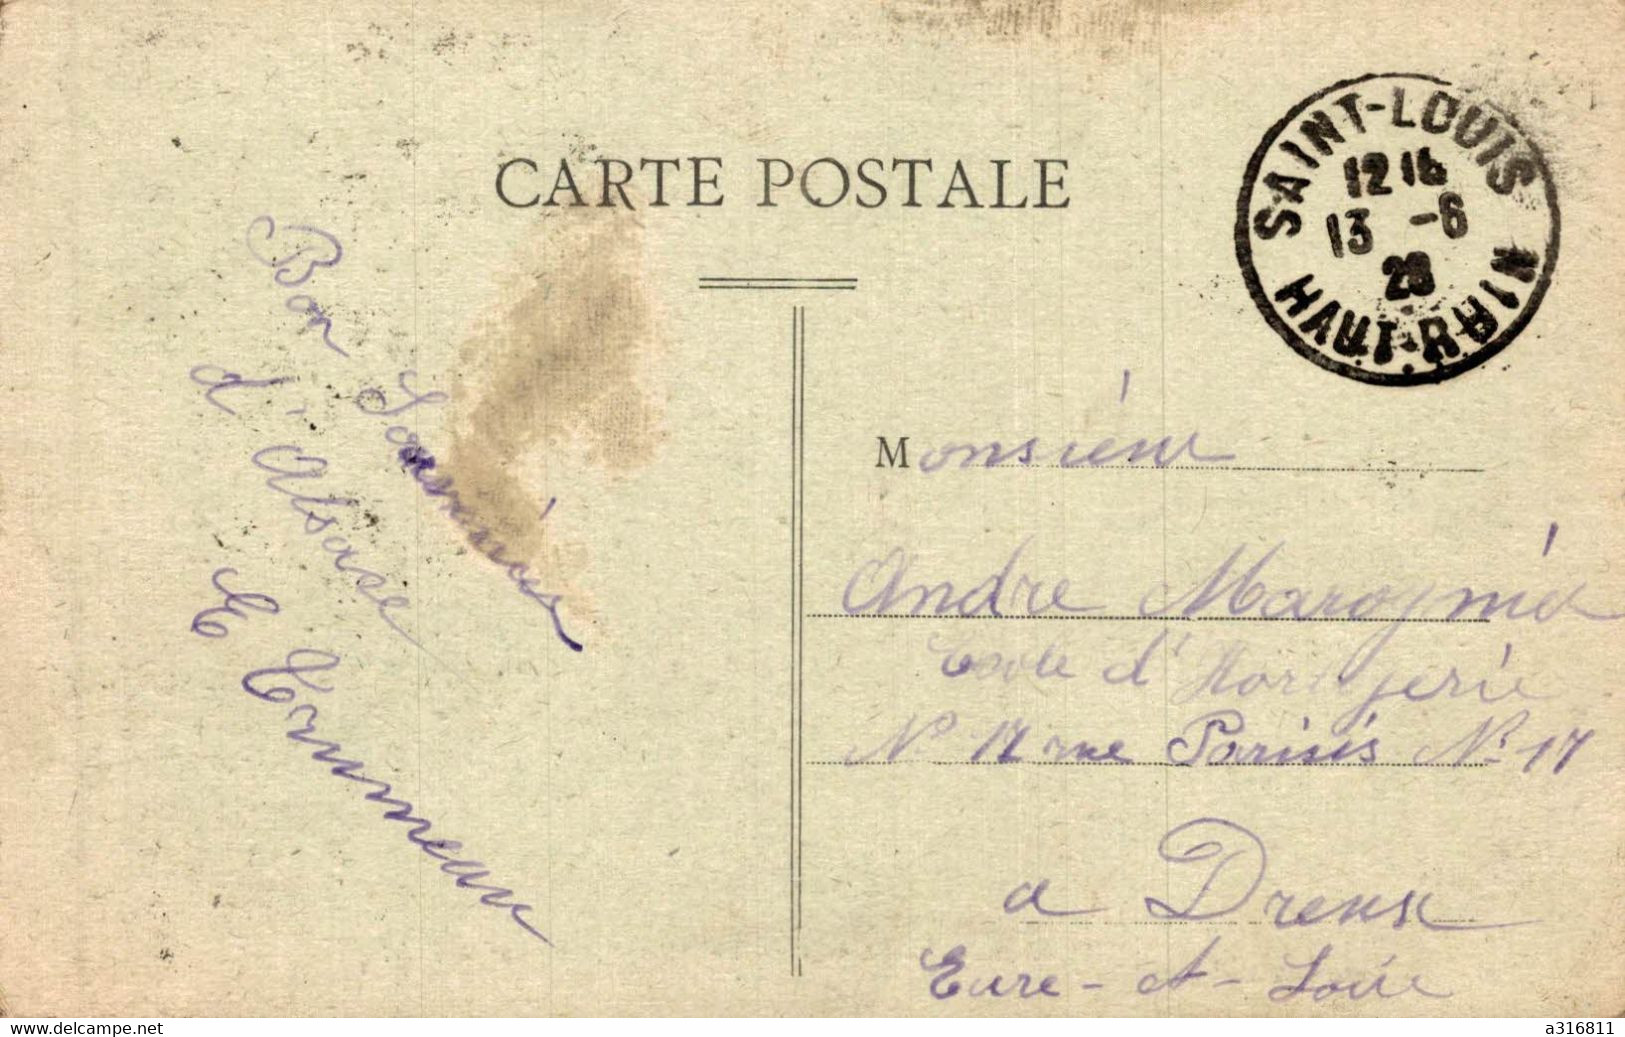 CARTE POSTALE
SAINT-LOUIS
12 16
13 -6
28
HAUT-RHIN
Bon Souvenir
d'Alsace
E Trumeau
Monsieur
André
École d'Horlogerie
N° 17 rue Parisis N° 17
a Dreux
Eure-et-Loir
delcampe.net
a316811